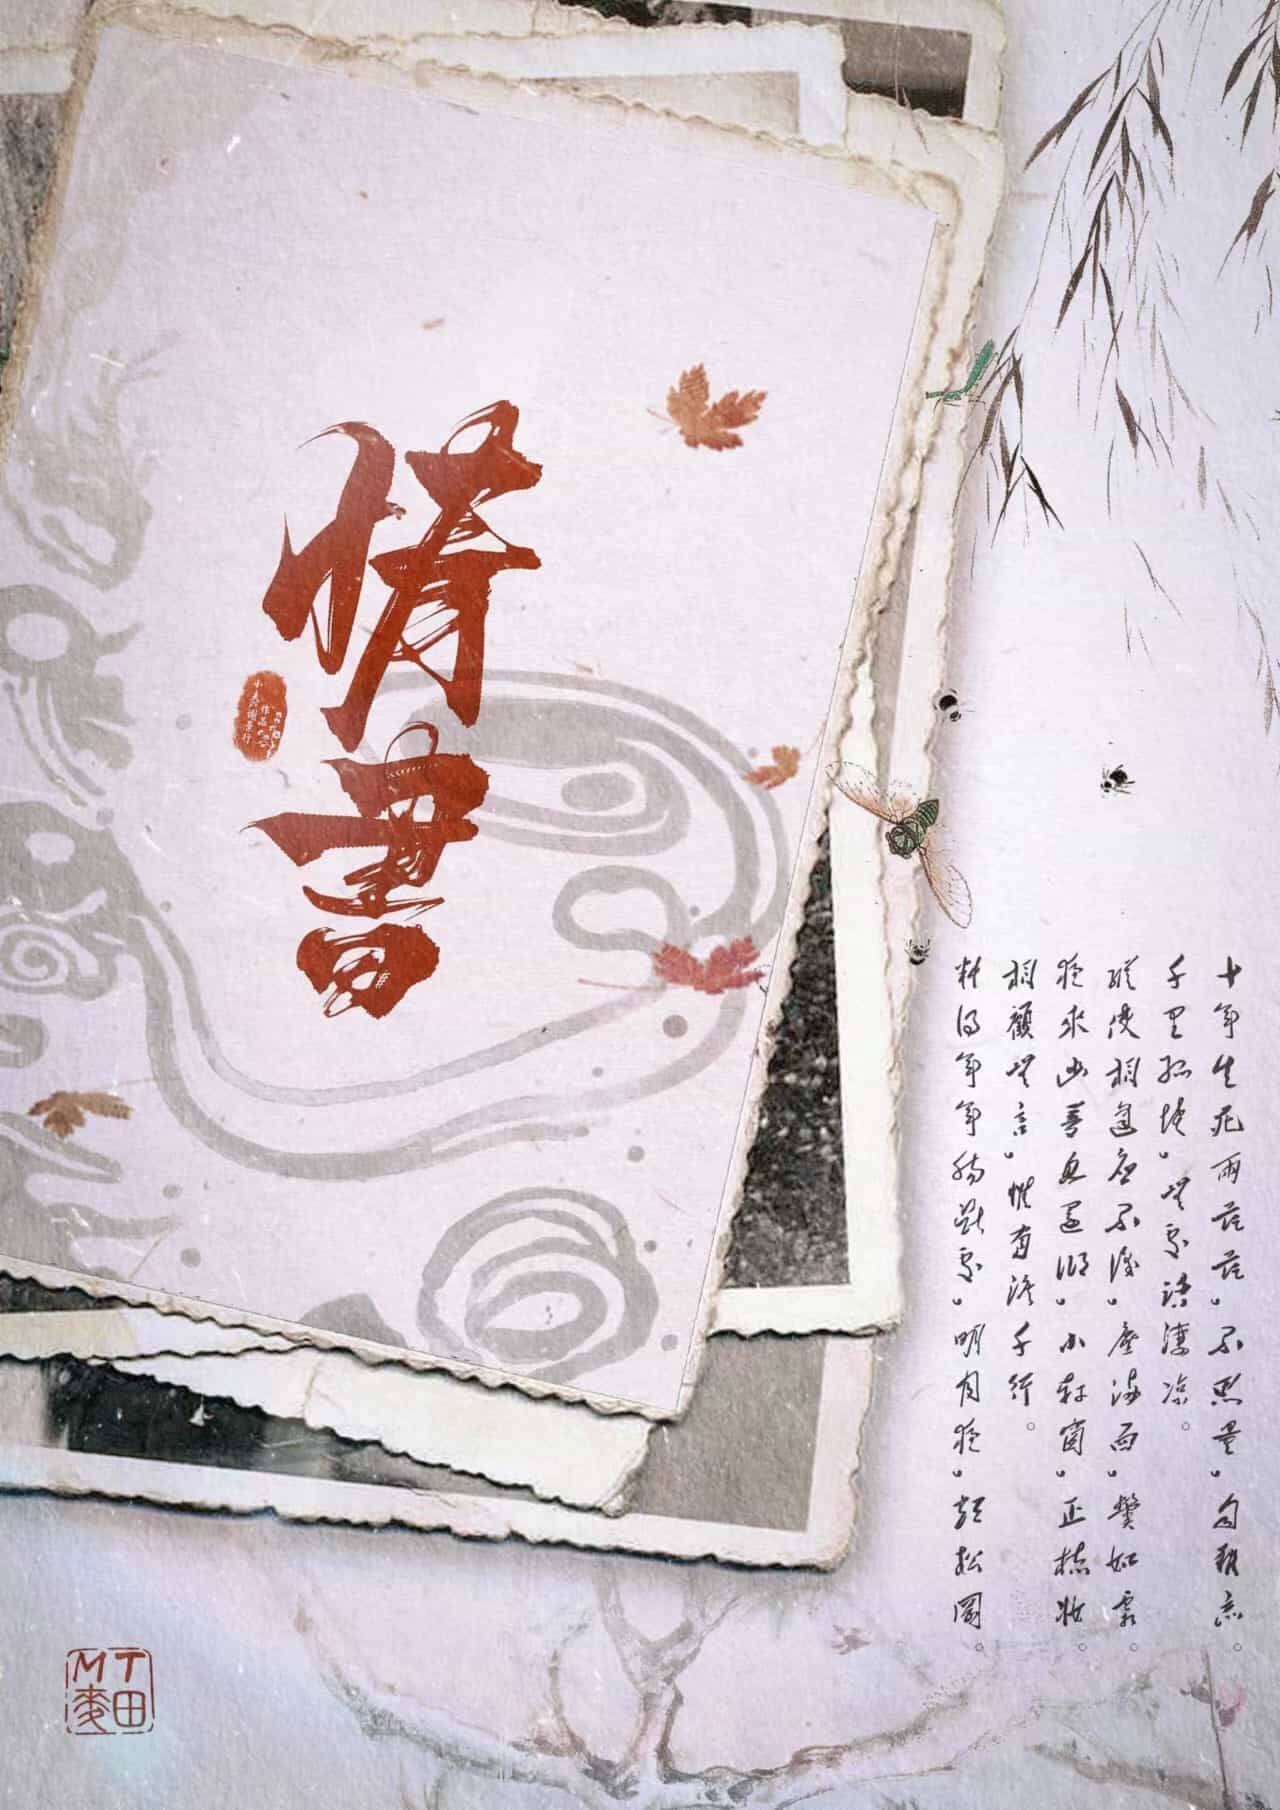 情書
十年生死兩茫茫，不思量，自難忘。
千里孤墳，無處話淒涼。
縱使相逢應不識，塵滿面，鬢如霜。
夜來幽夢忽還鄉，小軒窗，正梳妝。
相顧無言，惟有淚千行。
料得年年腸斷處，明月夜，短松岡。
MT
麥田